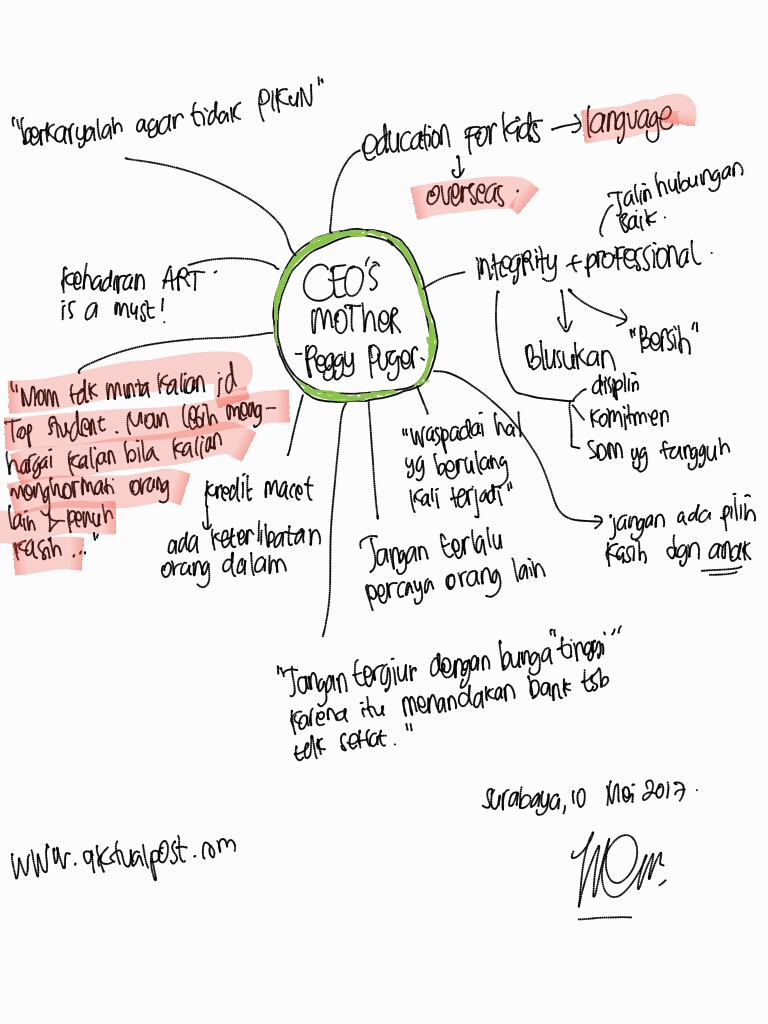 "berkaryalah agar tidak PIKUN"
education for kids → language
↓
overseas.
Jalin hubungan
Baik.
integrity + professional.
"Bersih"
Blusukan
disiplin
komitmen
SDM yg tangguh
CEO'S
MOTHER
-Peggy Puger-
kehadiran ART.
is a must!
"Mom tdk minta kalian jd
Top student. Mom lebih meng-
hargai kalian bila kalian
menghormati orang
lain & penuh
kasih ..."
kredit macet
ada keterlibatan
orang dalam
"Waspadai hal
yg berulang
kali terjadi"
Jangan terlalu
percaya orang lain
jangan ada pilih
kasih dgn anak
"Jangan tergiur dengan bunga "tinggi"
karena itu menandakan bank tsb
tdk sehat."
Surabaya, 10 Mei 2017.
www.qkstualpost.com